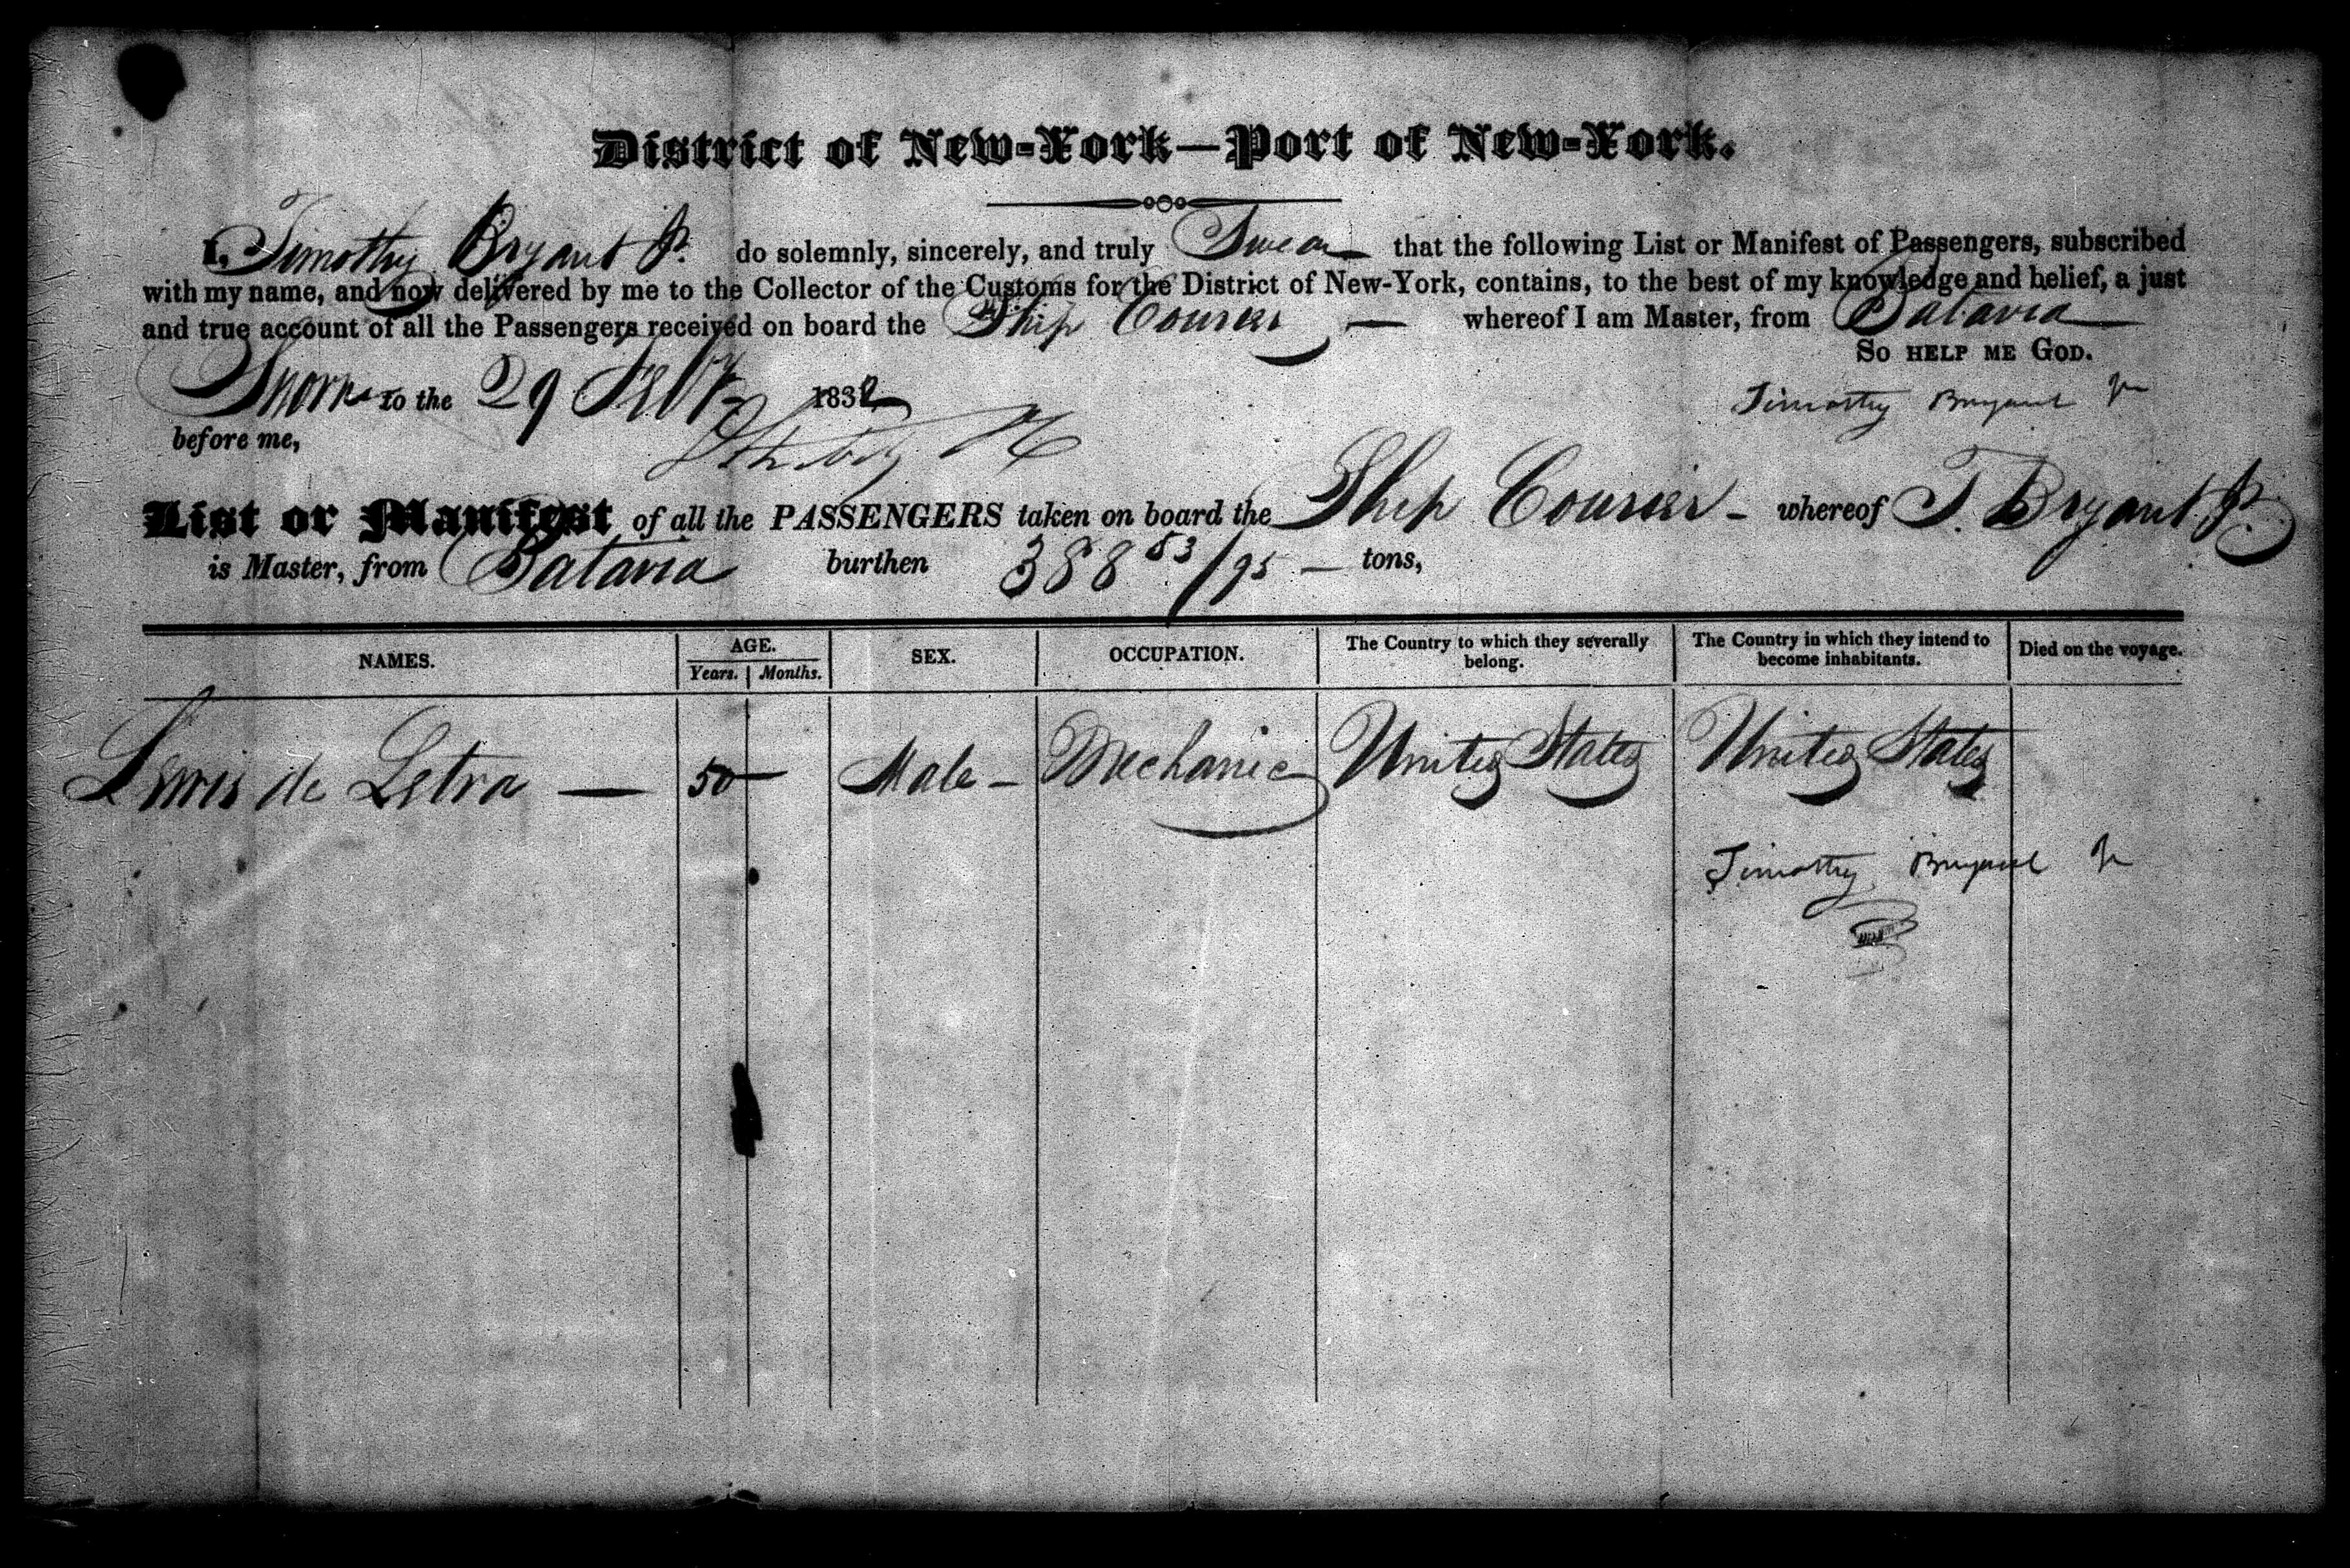 District of New-York—Port of New-York.
I, Timothy Bryant Jr. do solemnly, sincerely, and truly Swear that the following List or Manifest of Passengers, subscribed
with my name, and now delivered by me to the Collector of the Customs for the District of New-York, contains, to the best of my knowledge and belief, a just
and true account of all the Passengers received on board the Ship Courier — whereof I am Master, from Batavia
So help me God.
Sworn to the 29 Feby 1832
Timothy Bryant Jr
before me,
List or Manifest of all the PASSENGERS taken on board the Ship Courier - whereof T. Bryant Jr.
is Master, from Batavia burthen 388 53/95 — tons,
NAMES. AGE. Years. Months. SEX. OCCUPATION. The Country to which they severally belong. The Country in which they intend to become inhabitants. Died on the voyage.
Lewis de Letra — 50 — Male - Mechanic United States United States
Timothy Bryant Jr